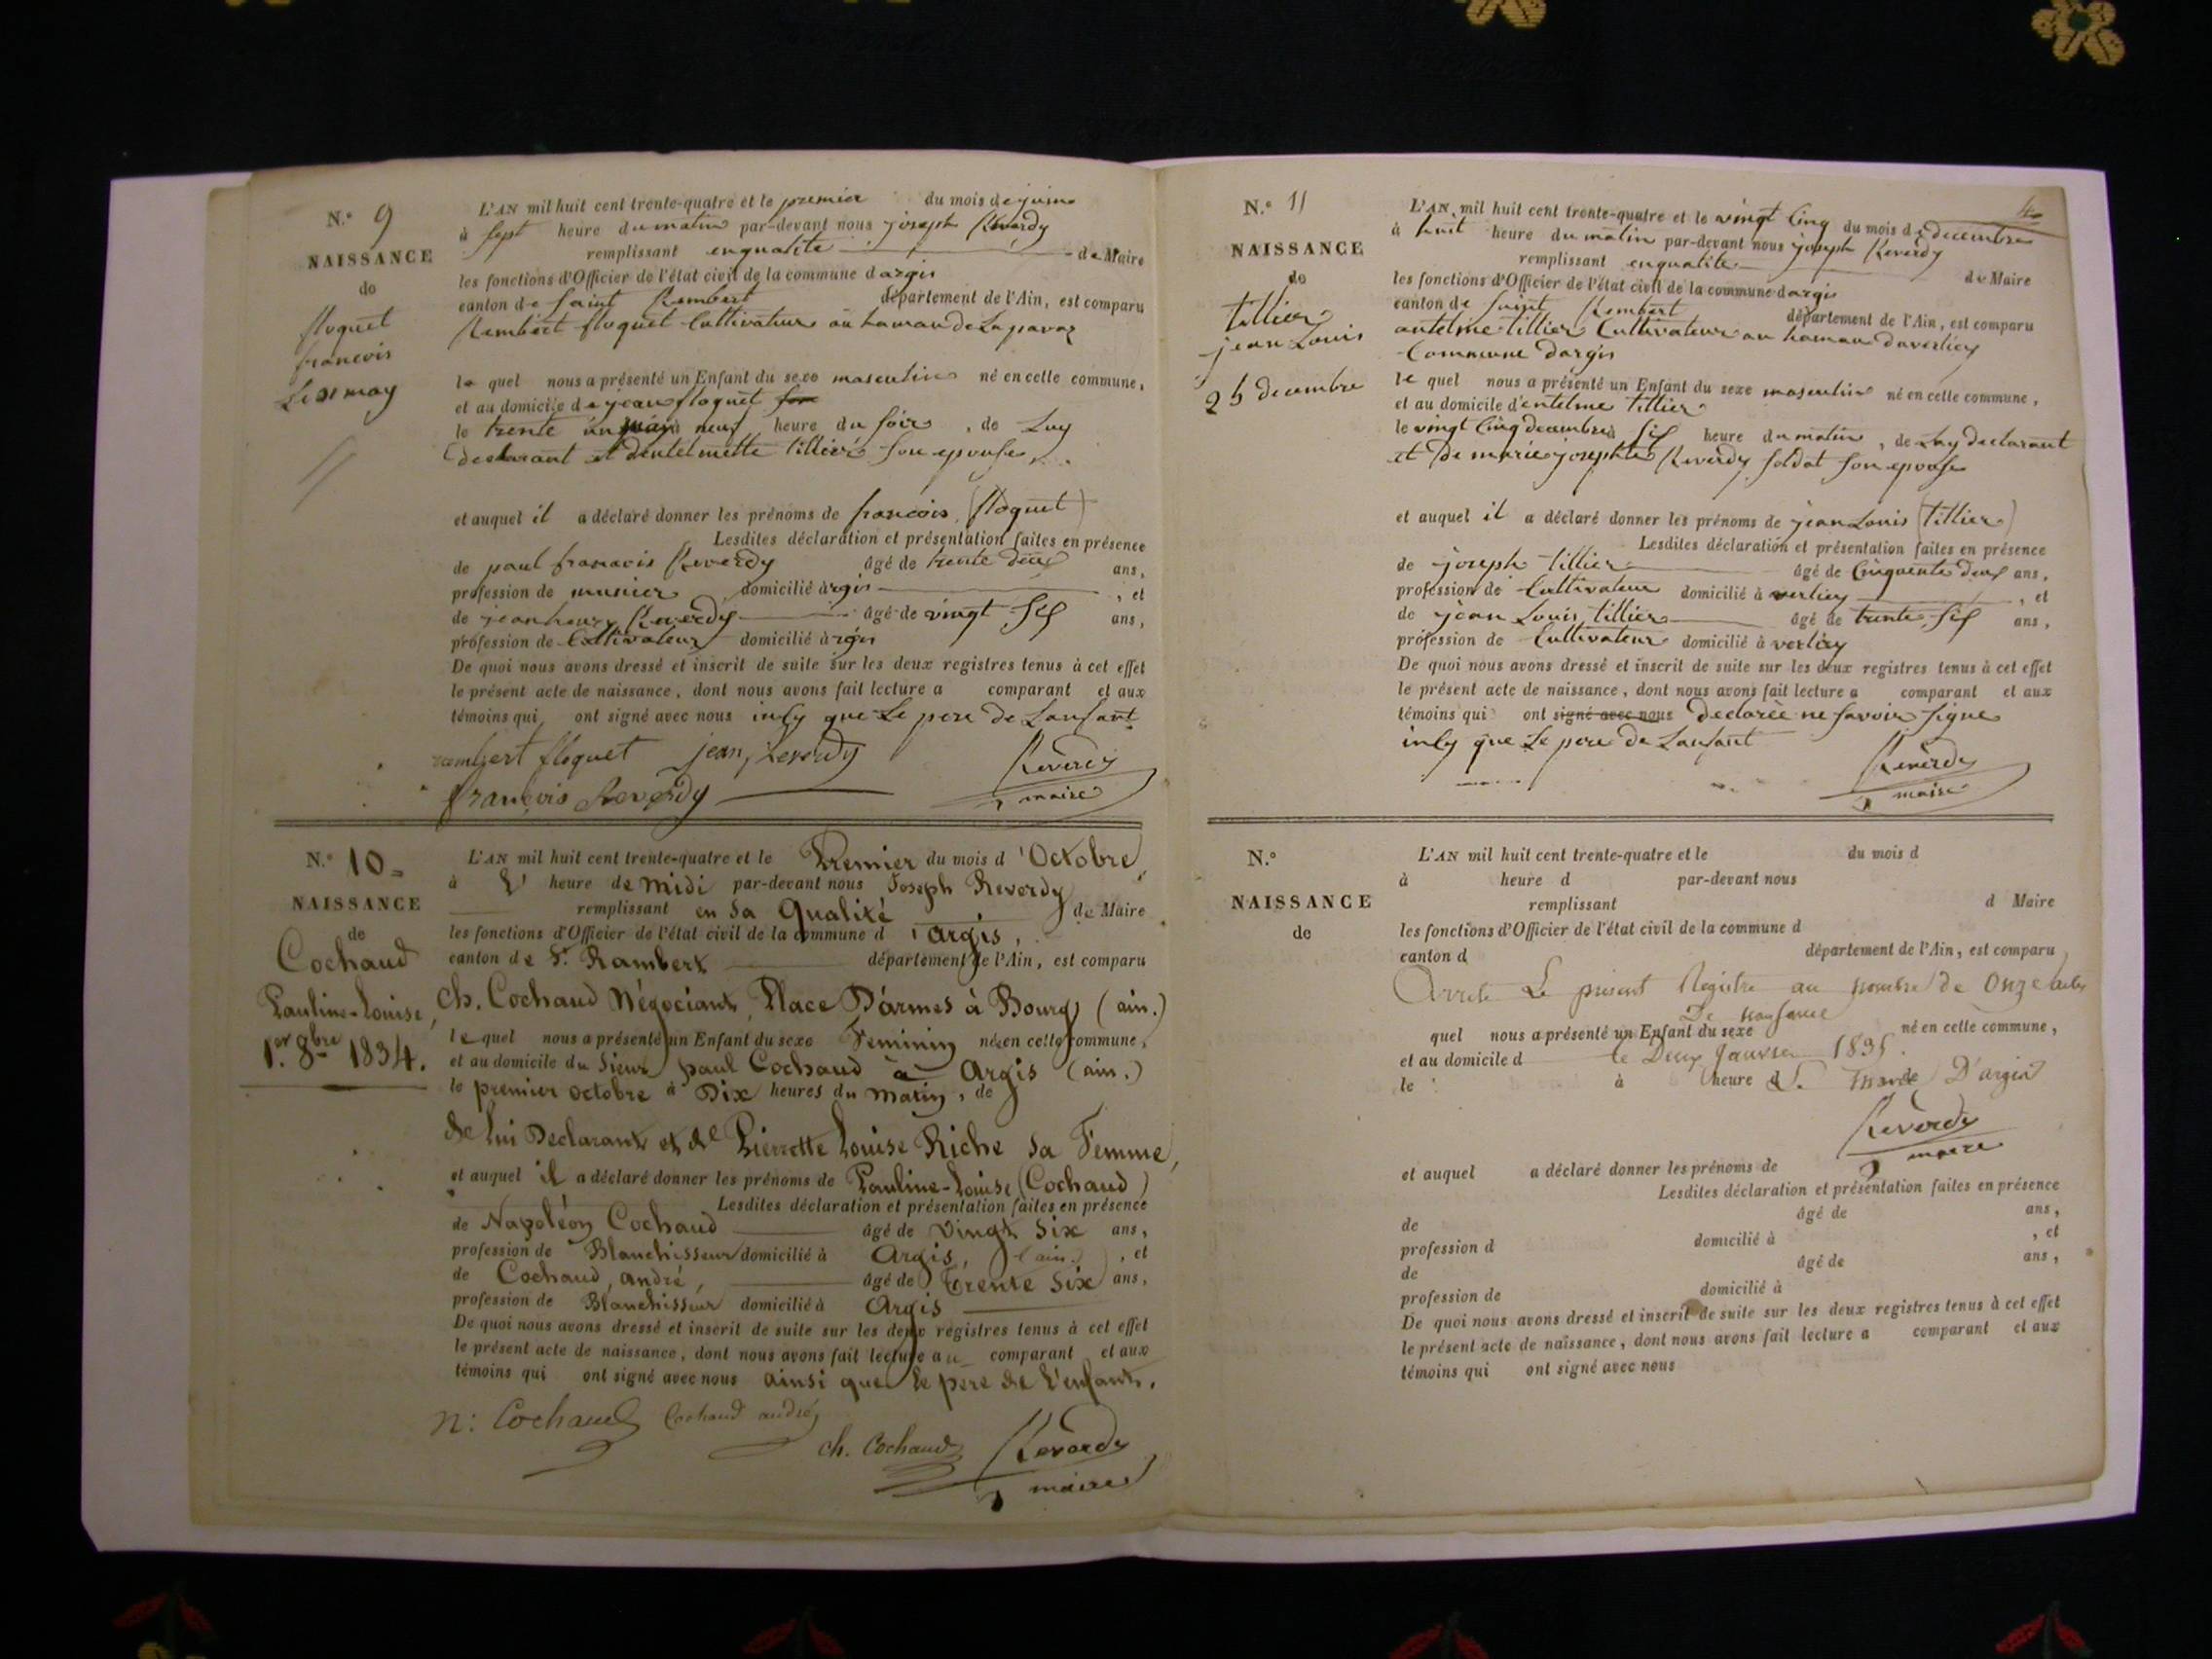 N.º 9
NAISSANCE
de
floquet
francois
Le 31 may
L'AN mil huit cent trente-quatre et le premier du mois de juin
à sept heure du matin par-devant nous joseph Reverdy
remplissant enqualite de Maire
les fonctions d'Officier de l'état civil de la commune dargis
canton de saint Rembert département de l'Ain, est comparu
Rembert floquet Cultivateur au hamau de Lapavaz
le quel nous a présenté un Enfant du sexe masculin né en cette commune,
et au domicile de jean floquet
le trente un may à neuf heure du soir, de Luy
declarant et dentelmette tillier son epouse
et auquel il a déclaré donner les prénoms de francois (floquet)
Lesdites déclaration et présentation faites en présence
de paul francois Reverdy âgé de trente deux ans,
profession de munier domicilié àrgis, et
de jean henry Reverdy âgé de vingt six ans,
profession de Cultivateur domicilié àrgis
De quoi nous avons dressé et inscrit de suite sur les deux registres tenus à cet effet
le présent acte de naissance, dont nous avons fait lecture a comparant et aux
témoins qui ont signé avec nous insy que Le pere de Lanfant
rambert floquet jean Reverdy Reverdy
francois Reverdy maire
N.º 10
NAISSANCE
de
Cochaud
Pauline-Louise,
1.er 8bre 1834.
L'AN mil huit cent trente-quatre et le Premier du mois d'Octobre,
à L' heure de midi par-devant nous Joseph Reverdy
remplissant en sa Qualité de Maire
les fonctions d'Officier de l'état civil de la commune d'argis,
canton de St. Rambert département de l'Ain, est comparu
Ch. Cochaud Négociant, Place D'armes à Bourg (ain.)
lequel nous a présenté un Enfant du sexe Feminin né en cette commune,
et au domicile du Sieur paul Cochaud à Argis (ain.)
le premier octobre à Dix heures du matin, de
de lui Declarant et de Pierrette Louise Riche sa Femme,
et auquel il a déclaré donner les prénoms de Pauline-Louise (Cochaud)
Lesdites déclaration et présentation faites en présence
de Napoléon Cochaud âgé de vingt six ans,
profession de Blanchisseur domicilié à Argis, (ain.), et
de Cochaud, andré, âgé de Trente Six ans,
profession de Blanchisseur domicilié à Argis
De quoi nous avons dressé et inscrit de suite sur les deux registres tenus à cet effet
le présent acte de naissance, dont nous avons fait lecture au comparant et aux
témoins qui ont signé avec nous ainsi que le pere de l'enfant.
n: Cochaud Cochaud andré
ch. Cochaud Reverdy
maire
N.º 11
NAISSANCE
de
tillier
jean Louis
25 decembre
L'AN mil huit cent trente-quatre et le vingt cinq du mois de decembre
à huit heure du matin par-devant nous joseph Reverdy
remplissant enqualite de Maire
les fonctions d'Officier de l'état civil de la commune dargis
canton de saint Rembert département de l'Ain, est comparu
antelme tillier Cultivateur au hamau daverliey
Commune dargis
le quel nous a présenté un Enfant du sexe masculin né en cette commune,
et au domicile d'entelme tillier
le vingt Cinq decembre à six heure du matin, de Luy declarant
et de marie josephte Reverdy soldat son epouse
et auquel il a déclaré donner les prénoms de jean Louis (tillier)
Lesdites déclaration et présentation faites en présence
de joseph tillier âgé de Cinquente deux ans,
profession de Cultivateur domicilié à verliey, et
de jean Louis tillier âgé de trente six ans,
profession de Cultivateur domicilié à verliey
De quoi nous avons dressé et inscrit de suite sur les deux registres tenus à cet effet
le présent acte de naissance, dont nous avons fait lecture a comparant et aux
témoins qui ont signé avec nous declarée ne savoir signe
insy que Le pere de Lanfant
Reverdy
maire
N.º
NAISSANCE
de
L'AN mil huit cent trente-quatre et le du mois d
à heure d par-devant nous
remplissant d Maire
les fonctions d'Officier de l'état civil de la commune d
canton d département de l'Ain, est comparu
Arreté Le présent Registre au nombre de Onze actes
De naissance
quel nous a présenté un Enfant du sexe né en cette commune,
et au domicile d le Deux Janvier 1835.
le à heure d Maire D'argis
Reverdy
maire
et auquel a déclaré donner les prénoms de
Lesdites déclaration et présentation faites en présence
de âgé de ans,
profession d domicilié à, et
de âgé de ans,
profession de domicilié à
De quoi nous avons dressé et inscrit de suite sur les deux registres tenus à cet effet
le présent acte de naissance, dont nous avons fait lecture a comparant et aux
témoins qui ont signé avec nous